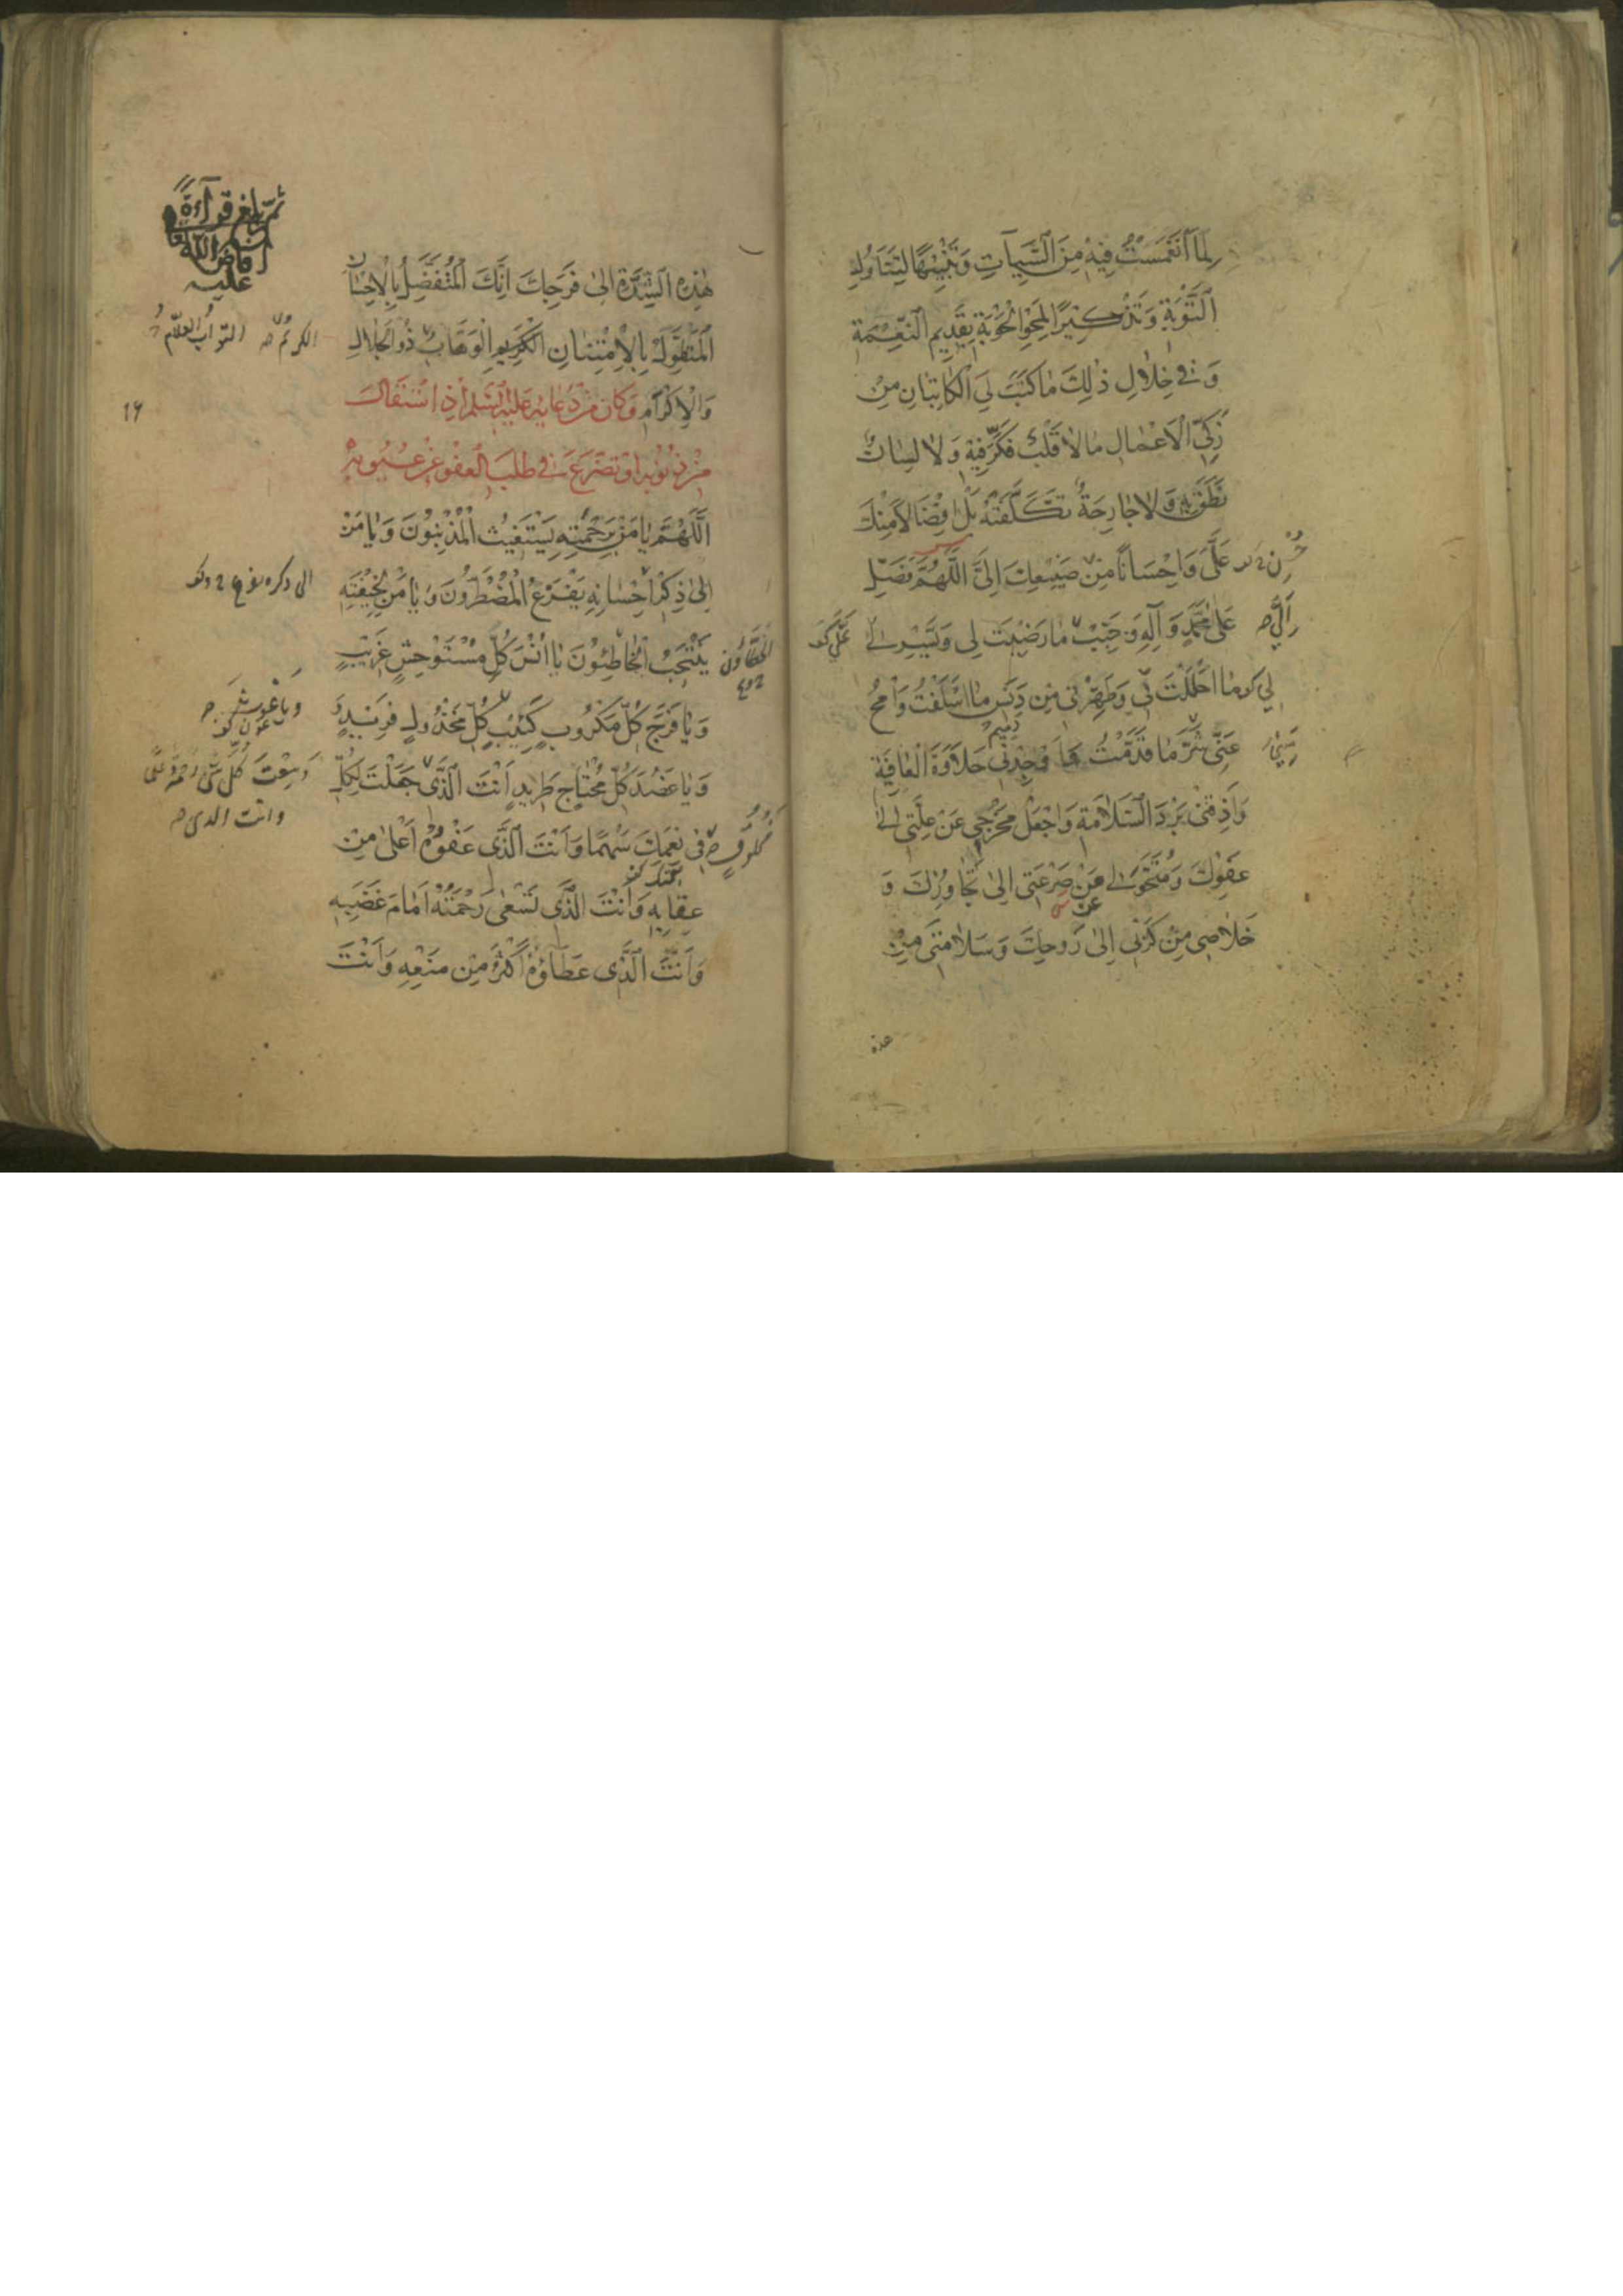 لِمَا انْغَمَسْتُ فِيهِ مِنَ السَّيِّئَاتِ وَتَنْبِيهًا لِتَنَاوُلِ
التَّوْبَةِ وَتَذْكِيرًا لِمَحْوِ الْحَوْبَةِ بِقَدِيمِ النِّعْمَةِ
وَفِي خِلَالِ ذٰلِكَ مَا كَتَبَ لِيَ الْكَاتِبَانِ مِنْ
زَكِيِّ الْأَعْمَالِ مَا لَا قَلْبٌ فَكَّرَ فِيهِ وَلَا لِسَانٌ
نَطَقَ بِهِ وَلَا جَارِحَةٌ تَكَلَّفَتْهُ بَلْ اِفْضَالًا مِنْكَ
عَلَيَّ وَاِحْسَانًا مِنْ صَنِيعِكَ اِلَيَّ اللّٰهُمَّ فَصَلِّ
عَلىٰ مُحَمَّدٍ وَآلِهِ وَحَبِّبْ مَا رَضِيتَ لِي وَيَسِّرْ لِي
اِلَيَّ
مَا اَحْلَلْتَ بِي وَطَهِّرْنِي مِنْ دَنَسِ مَا اَسْلَفْتُ وَامْحُ
عَنِّي شَرَّ مَا قَدَّمْتُ وَاَوْجِدْنِي حَلَاوَةَ الْعَافِيَةِ
وَاَذِقْنِي بَرْدَ السَّلَامَةِ وَاجْعَلْ مَخْرَجِي عَنْ عِلَّتِي اِلىٰ
عَفْوِكَ وَمُتَحَوَّلِي عَنْ صَرْعَتِي اِلىٰ تَجَاوُزِكَ وَ
عن
خَلَاصِي مِنْ كَرْبِي اِلىٰ رَوْحِكَ وَسَلَامَتِي مِنْ
هذه
هٰذِهِ الشِّدَّةِ اِلىٰ فَرَجِكَ اِنَّكَ الْمُتَفَضِّلُ بِالْاِحْسَانِ
الْمُتَطَوِّلُ بِالْاِمْتِنَانِ الْكَرِيمُ الْوَهَّابُ ذُو الْجَلَالِ
وَالْاِكْرَامِ وَكَانَ مِنْ دُعَائِهِ عَلَيْهِ السَّلَمُ اِذَا اسْتَقَالَ
مِنْ ذُنُوبِهِ اَوْ تَضَرَّعَ فِي طَلَبِ الْعَفْوِ عَنْ عُيُوبِهِ
اَللّٰهُمَّ يَا مَنْ بِرَحْمَتِهِ يَسْتَغِيثُ الْمُذْنِبُونَ وَيَا مَنْ
اِلىٰ ذِكْرِ اِحْسَانِهِ يَفْزَعُ الْمُضْطَرُّونَ وَيَا مَنْ لِخِيفَتِهِ
يَنْتَحِبُ الْخَاطِئُونَ يَا اُنْسَ كُلِّ مُسْتَوْحِشٍ غَرِيبٍ
وَيَا فَرَجَ كُلِّ مَكْرُوبٍ كَئِيبٍ كُلِّ مَخْذُولٍ فَرِيدٍ
وَيَا عَضُدَ كُلِّ مُحْتَاجٍ طَرِيدٍ اَنْتَ الَّذِي جَعَلْتَ لِكُلِّ
فِي نِعَمِكَ سَهْمًا وَاَنْتَ الَّذِي عَفْوُهُ اَعْلىٰ مِنْ
عِقَابِهِ وَاَنْتَ الَّذِي تَسْعىٰ رَحْمَتُهُ اَمَامَ غَضَبِهِ
وَاَنْتَ الَّذِي عَطَاؤُهُ اَكْثَرُ مِنْ مَنْعِهِ وَاَنْتَ
ثم بلغ قراءة
افاض الله
عليه
الكريم التواب العلام
الخطاؤن
وسعت كل شئ رحمة وعلما
وانت الذي
مخلوق